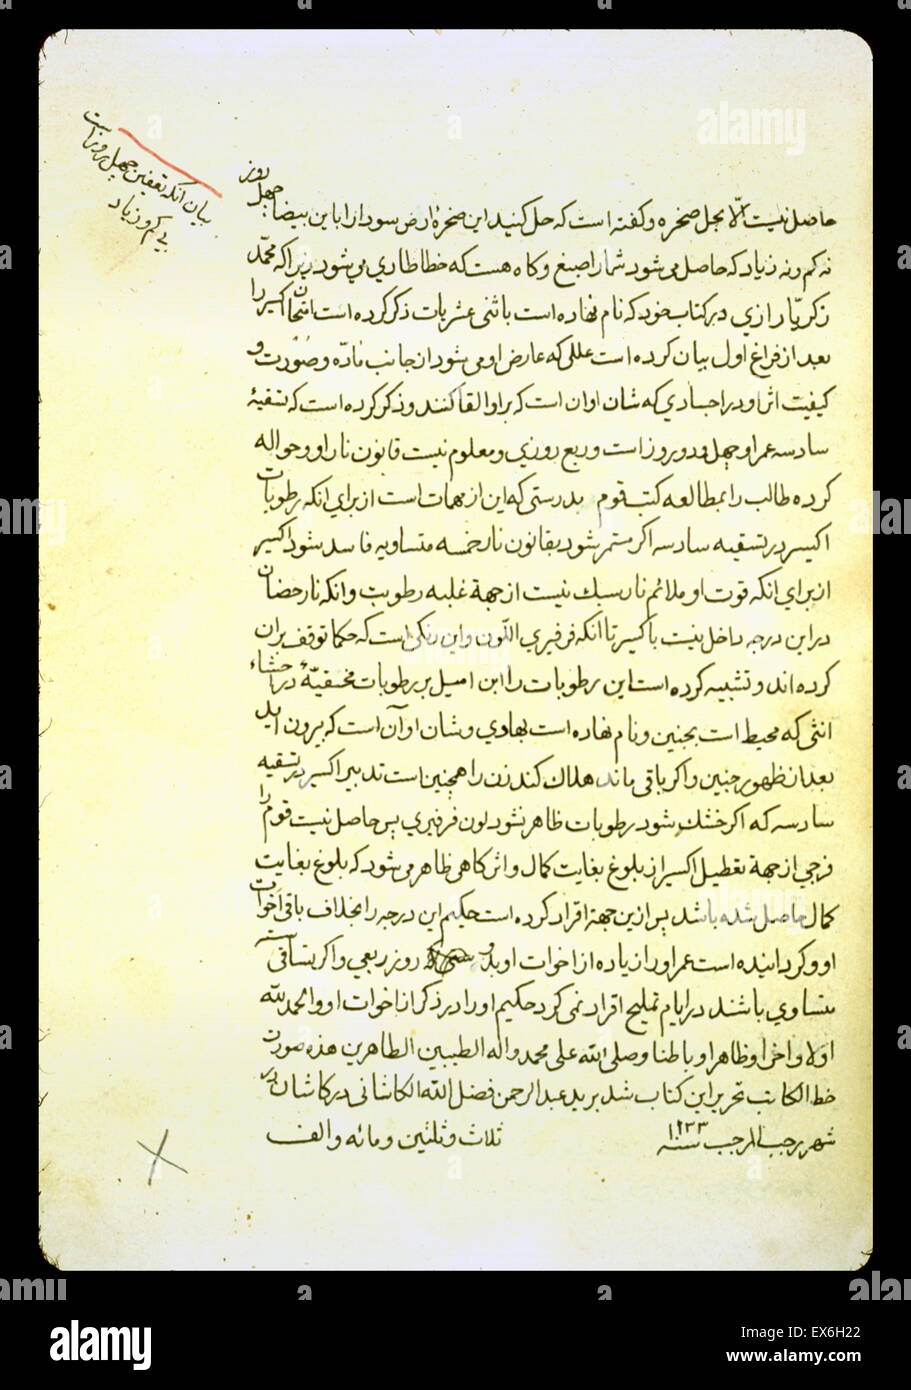 بیان آنکه تعفین چهل روز است
بی کم و زیاد
روز
حاصل نیست الّا بحل صخره و گفته است که حل کنید این صخرهٔ ارض سودا را باین بیضا چهل
نه کم و نه زیاد که حاصل می شود شما را صبغ و کاه هست که خطا طاری می شود زیرا که محمّد
زکریّا رازی در کتاب خود که نام نهاده است باثنی عشریات ذکر کرده است امتحان اکسیر را
بعد از فراغ اول بیان کرده است عللی که عارض او می شود از جانب مادّه و صورت و
کیفیت اثر او در اجسادی که شان او ان است که بر او القا کنند و ذکر کرده است که تسقیهٔ
سادسه عمر او چهل و دو روز است و ربع روزی و معلوم نیست قانون نار او و حواله
کرده طالب را بمطالعه کتب قوم بدرستی که این از مهمات است از برای انکه رطوبات
اکسیر در تسقیه سادسه اکر مستمر شود بقانون نار خمسه متساویه فاسد شود اکسیر
از برای انکه قوت او ملائم نار سبك نیست از جهة غلبه رطوبت و انکه نار حضان
در این درجه داخل نیست باکسیر تا انکه فرفیری اللّون و این رنکی است که حکما توقف بران
کرده اند و تشبیه کرده است این رطوبات را ابن امیل بر رطوبات محتقنهٔ در احشاء
انثی که محیط است بجنین و نام نهاده است بهاوی و شان او آن است که بیرون اید
بعد از ظهور جنین و اکر باقی ماند هلاك کند زن را همچنین است تدبیر اکسیر در تسقیه
سادسه که اکر خشك شود رطوبات ظاهر نشود لون فرفیری پس حاصل نیست قوم را
فرجی از جهة تعطیل اکسیر از بلوغ بغایت کمال و اثر کاهی ظاهر می شود که بلوغ بغایت
کمال حاصل شده باشد پس ازین جهة افراد کرده است حکیم این درجه را بخلاف باقی اخوات
او و کردانیده است عمر او را زیاده از اخوات او بدو روز ربعی و اکر تساقی
متساوی باشند در ایام تملیح افراد نمی کرد حکیم او را در ذکر از اخوات او و الحمد لله
اولا و اخرا و ظاهرا و باطنا وصلی الله علی محمد و اله الطیبین الطاهرین هذه صورت
خط الکاتب تحریر این کتاب شد بر ید عبدالرحمن فضل الله الکاشانی در کاشان در
شهر رجب المرجب سنه ۱۱۳۳ ثلاث و ثلثین و مائه و الف
alamy
alamy
Image ID: EX6H22
www.alamy.com